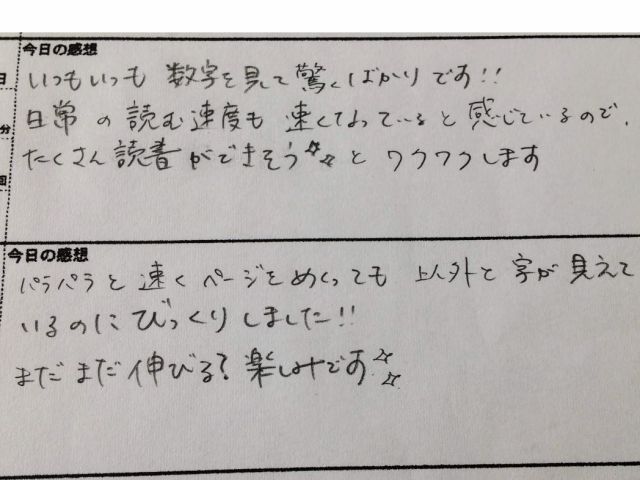 今日の感想
いつもいつも 数字を見て驚くばかりです!!
日常の読む速度も 速くなっていると感じているので、
たくさん読書ができそう☆☆と ワクワクします
今日の感想
パラパラと速くページをめくっても 以外と字が見えて
いるのにびっくりしました!!
まだまだ伸びる?楽しみです☆☆
日
分
回